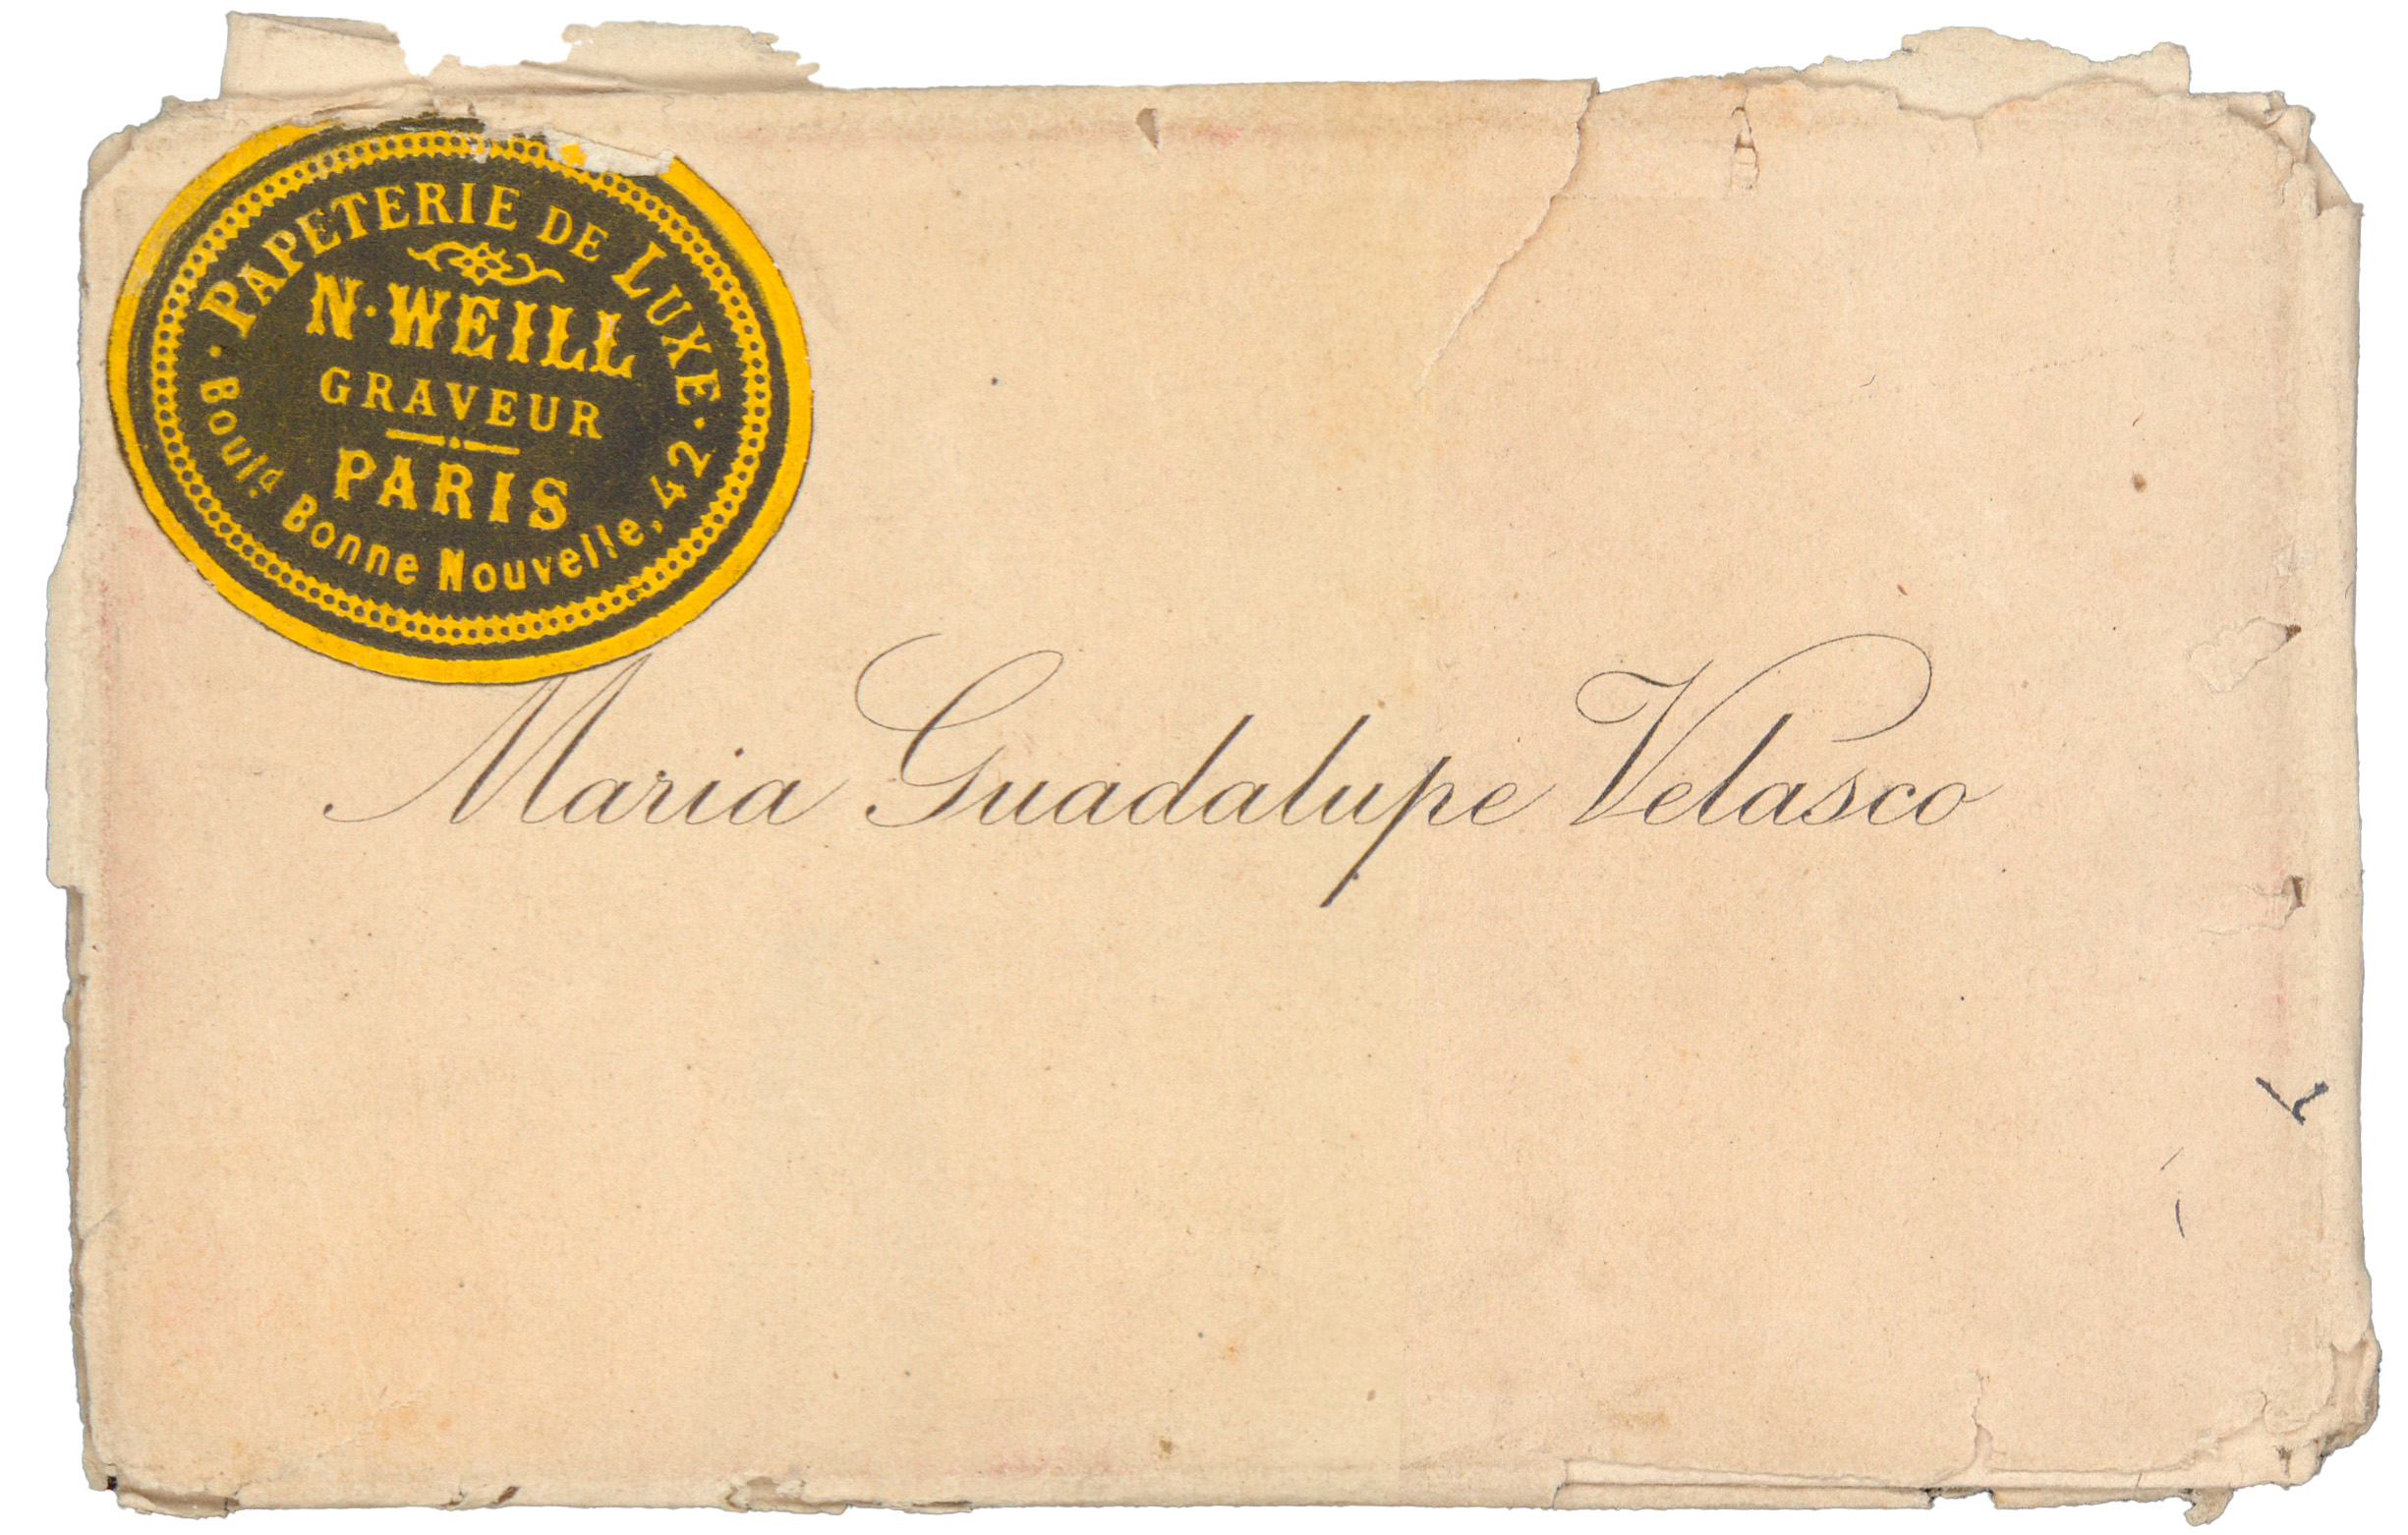 · PAPETERIE DE LUXE ·
N. WEILL
GRAVEUR
PARIS
Bould. Bonne Nouvelle, 42
Maria Guadalupe Velasco